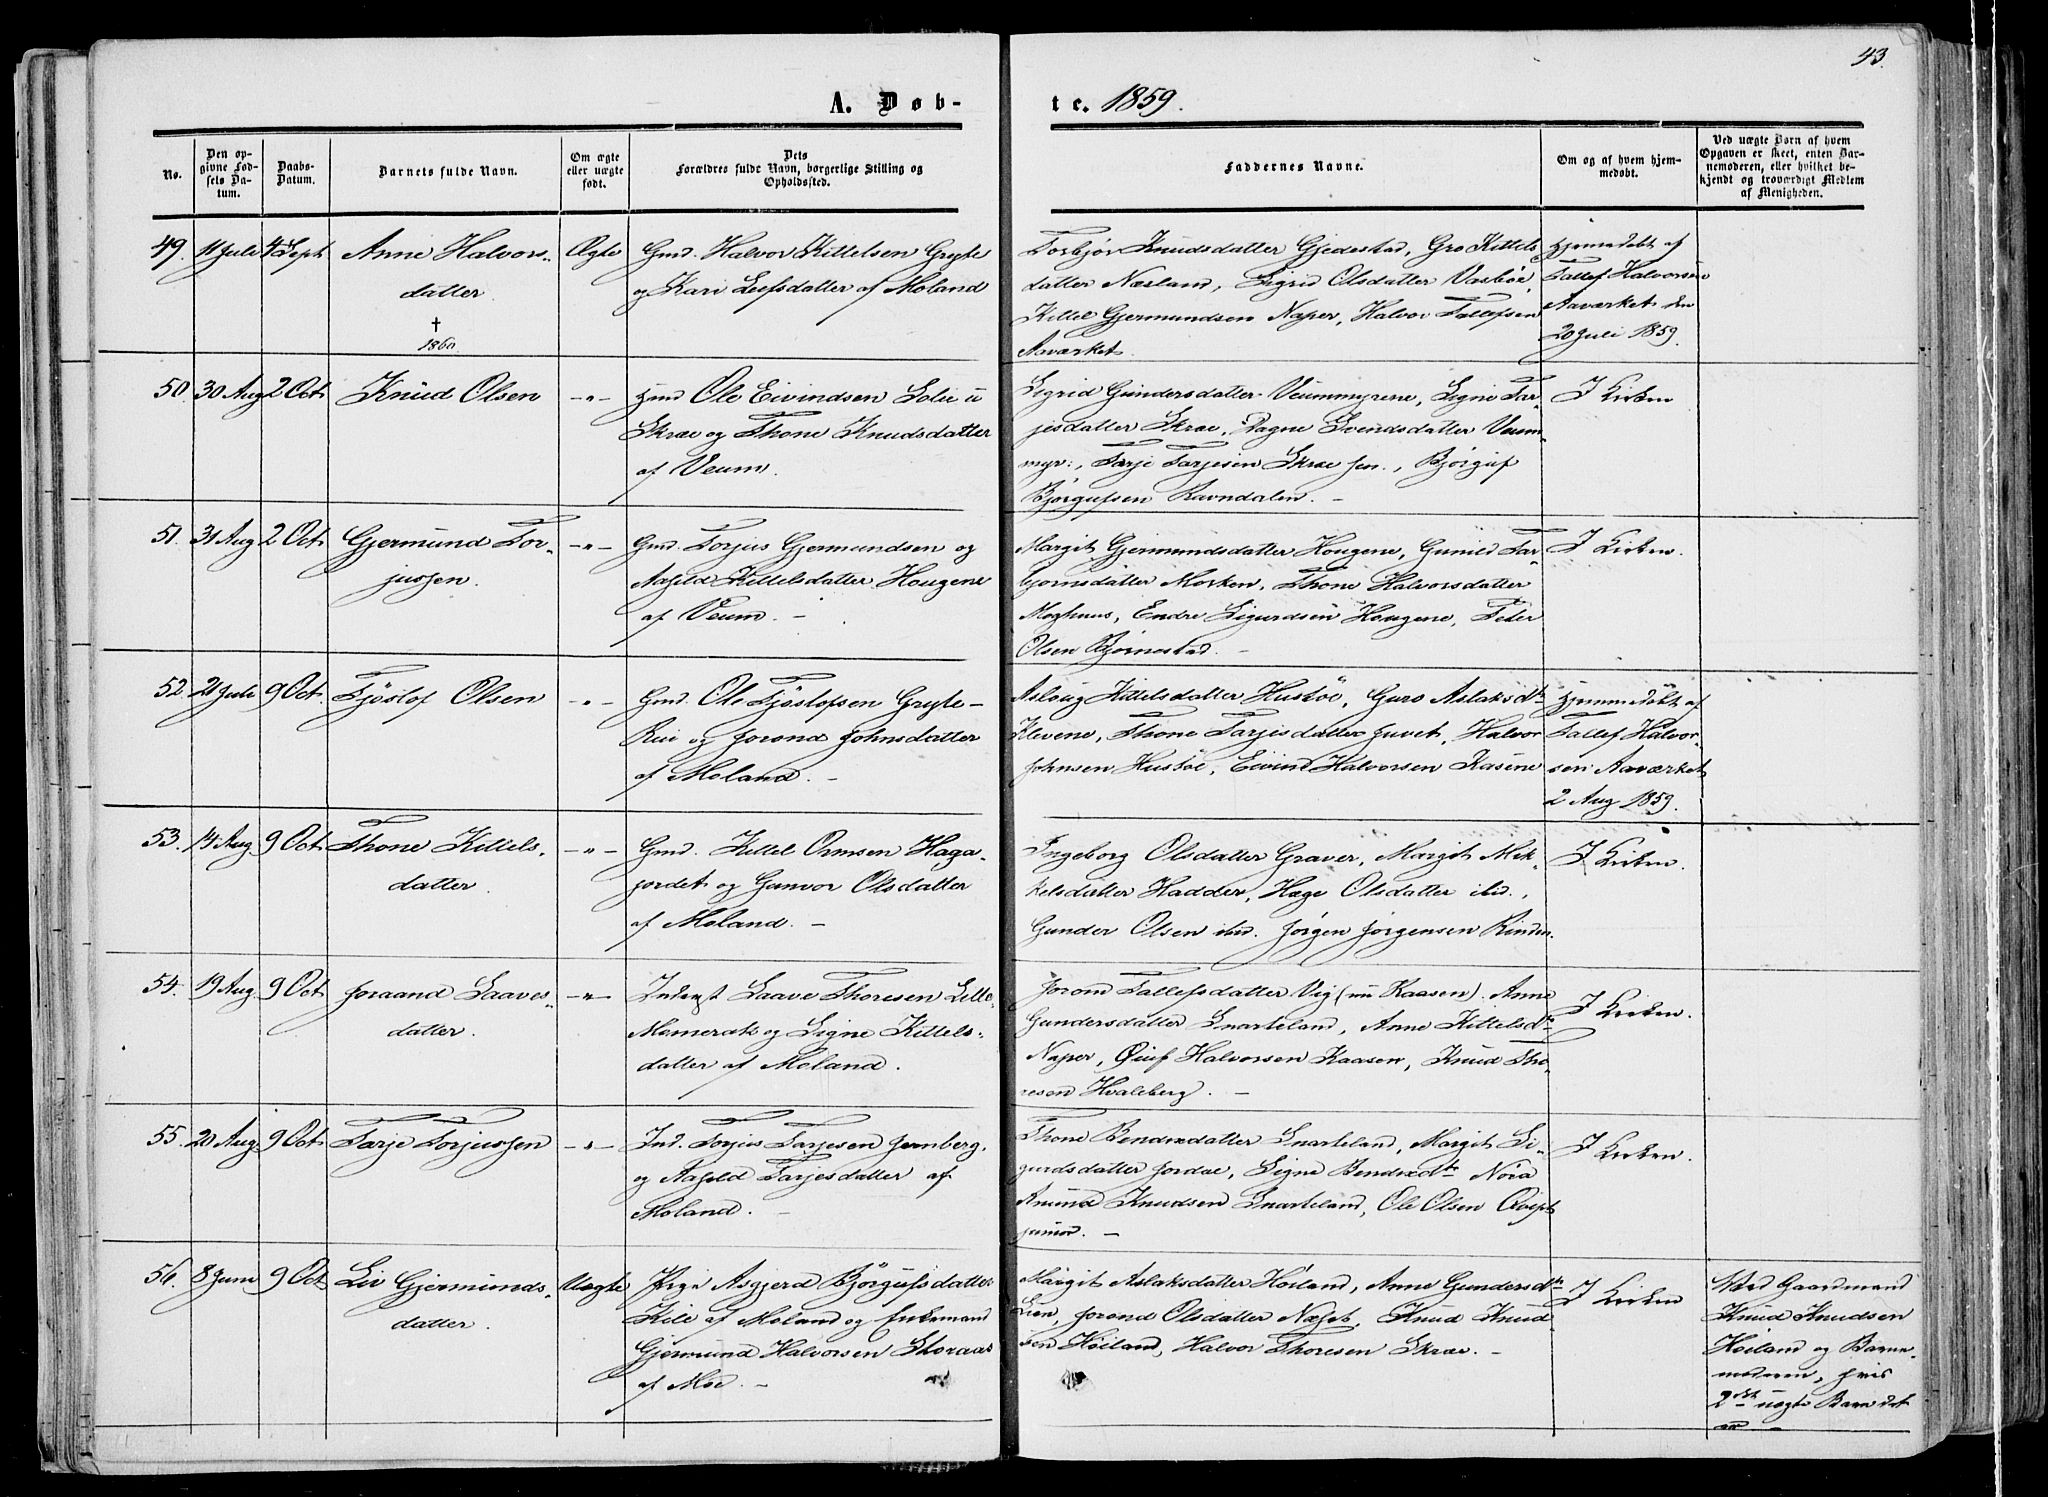 43.
A. Døb-
te. 1859.
No.
Den op-
givne Fød-
sels Da-
tum.
Daabs-
Datum.
Barnets fulde Navn.
Om ægte
eller uægte
født.
Dets
Forældres fulde Navn, borgerlige Stilling og
Opholdssted.
Faddernes Navne.
Om og af hvem hjem-
medøbt.
Ved uægte Børn af hvem
Opgaven er skeet, enten Bar-
nemoderen, eller hvilket be-
kjendt og troværdigt Medlem
af Menigheden.
49. 11 Juli 4 Sept Anne Halvors-
datter.
†
1860.
Ægte
Gmd. Halvor Kittelsen Gryte
og Kari Leifsdatter af Moland
Torbjør Knudsdatter Gjedestad, Gro Kittels
datter Næsland, Sigrid Olsdatter Vasbøe,
Kittel Gjermundsen Naper, Halvor Tallefsen
Aaværket.
Hjemmedøbt af
Tallef Halvorsen
Aaværket den
20 Juli 1859.
50. 30 Aug 2 Oct Knud Olsen
-"-
Hmd Ole Eivindsen Solie u
Skræe og Thone Knudsdatter
af Veum.
Sigrid Gundersdatter Veummyrene, Signe Tar-
jesdatter Skræe, Dagne Svendsdatter Veum-
myr:, Tarje Tarjesen Skræe sen., Bjørguf
Bjørgufsen Ravndalen. -
I Kirken
51. 31 Aug 2 Oct Gjermund Tor-
jussen.
-"-
Gmd. Torjus Gjermundsen og
Aasild Kittelsdatter Hougene
af Veum. -
Margit Gjermundsdatter Hougene, Gunild Tar-
bjørnsdatter Morken, Thone Halvorsdatter
Moghuus, Endre Sigurdsen Hougene, Peder
Olsen Bjørnestad. -
I Kirken.
52. 21 Juli 9 Oct. Tjøstof Olsen
-"-
Gmd. Ole Tjøstofsen Gryte-
Rui og Jorond Johnsdatter
af Moland. -
Aslaug Kittelsdatter Hustøe, Guro Aslaksdtr
Klevene, Thone Tarjesdatter Juvet, Halvor
Johnsen Hustøe, Eivind Halvorsen Kasene
Hjemmedøbt af
Tallef Halvor-
sen Aaværket
2 Aug 1859.
53. 14 Aug. 9 Oct. Thone Kittels-
datter.
-"-
Gmd. Kittel Ormsen Haga-
jordet og Gunvor Olsdatter
af Moland. -
Ingeborg Olsdatter Graver, Margit Mik-
kelsdatter Hadder, Hæge Olsdatter ibd.,
Gunder Olsen ibd. Jørgen Jørgensen Rinden.
I Kirken.
54. 19 Aug. 9 Oct Joraand Laaves-
datter.
-"-
Inderst Laave Thoresen Lille-
Momrak og Signe Kittels-
datter af Moland.
Jorond Tallefsdatter Vig (nu Kaasen). Anne
Gundersdatter Snarteland, Anne Kittelsdtr
Naper, Øiuf Halvorsen Kaasen, Knud Tho-
resen Hvaleberg. -
I Kirken.
55. 20 Aug. 9 Oct. Tarje Torjussen
-"-
Ind. Torjus Tarjesen Jernberg.
og Aasild Tarjesdatter af
Moland. -
Thone Bendixdatter Snarteland, Margit Si-
gurdsdatter Jordae, Signe Bendixdtr
Anund Knudsen Snarteland, Ole Olsen
junior. -
I Kirken.
56. 8 Juni 9 Oct Liv Gjermunds-
datter.
Uægte
Pige Asgjerd Bjørgufsdatter
Kile af Moland og Enkemand
Gjermund Halvorsen Storaas
af Moe. -
Margit Aslaksdatter Høiland, Anne Gundersdtr
Lien, Jorond Olsdatter Næset, Knud Knud-
sen Høiland, Halvor Thoresen Skræe. -
I Kirken
Ved Gaardmand
Knud Knudsen
Høiland og Barne-
moderen, hvis
2det uægte Barn det
er -